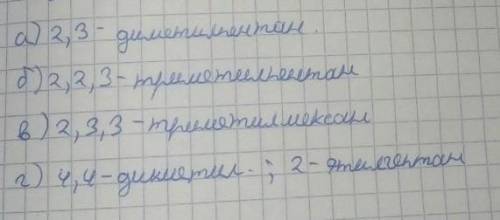 а) 2,3- диметилпентан.
б) 2,2,3-триметилпентан
в) 2,3,3-триметилгексан
г) 4,4-диметил. ; 2-этилгептан